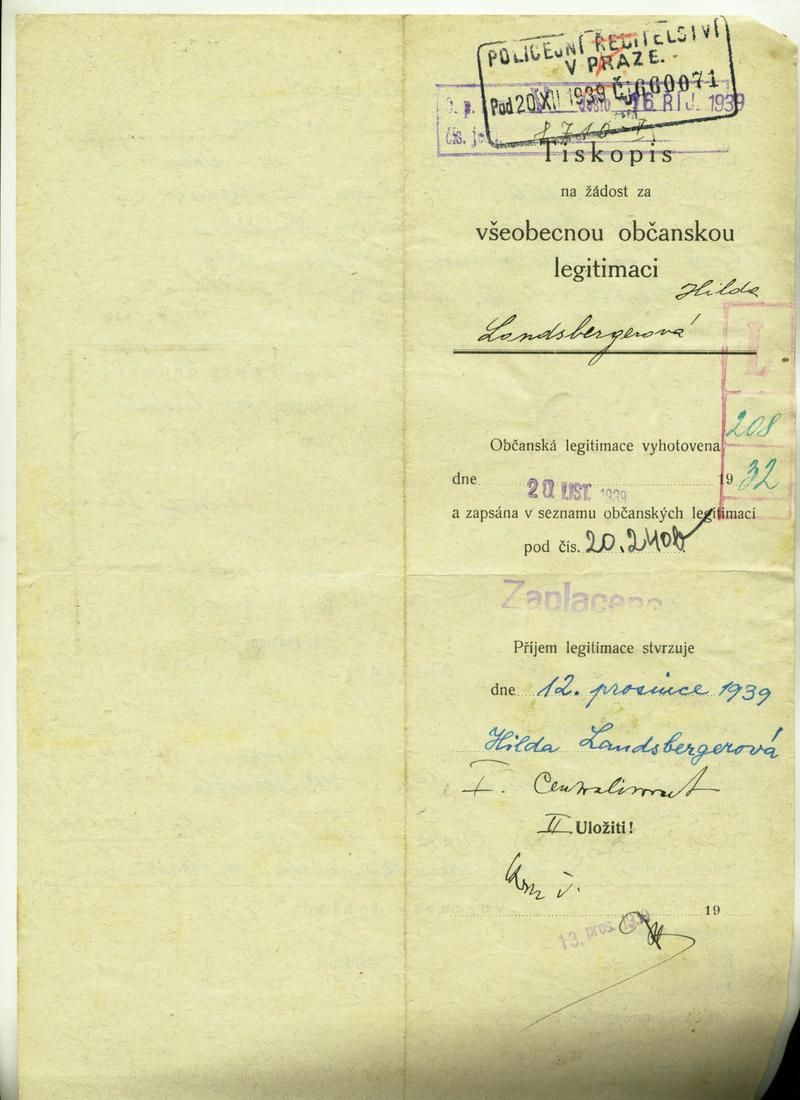 POLICEJNÍ ŘEDITELSTVÍ
V PRAZE.
Pod 20 XII 1939 Č. 660071
16. ŘÍJ. 1939
čís. jed.
Tiskopis
na žádost za
všeobecnou občanskou
legitimaci
Hilda
Landsbergerová
L
208
32
Občanská legitimace vyhotovena
dne 20 LIST. 1939 19
a zapsána v seznamu občanských legitimací
pod čís. 20.240b
Zaplaceno
Příjem legitimace stvrzuje
dne 12. prosince 1939
Hilda Landsbergerová
I. Centralisovat
II Uložiti!
19
13. pros. 1939